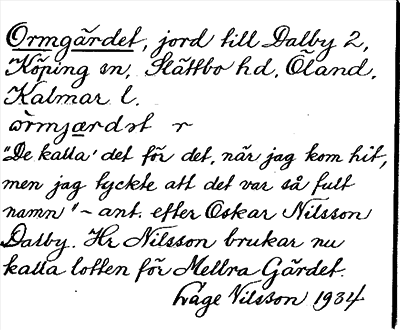 Ormgärdet, jord till Dalby 2,
Köping sn, Slättbo hd, Öland,
Kalmar l.
òrmjærdət r
"De kalla' det för det, när jag kom hit,
men jag tyckte att det var så fult
namn" – ant. efter Oskar Nilsson
Dalby. Hr Nilsson brukar nu
kalla lotten för Mellra Gärdet.
Låge Nilsson 1934